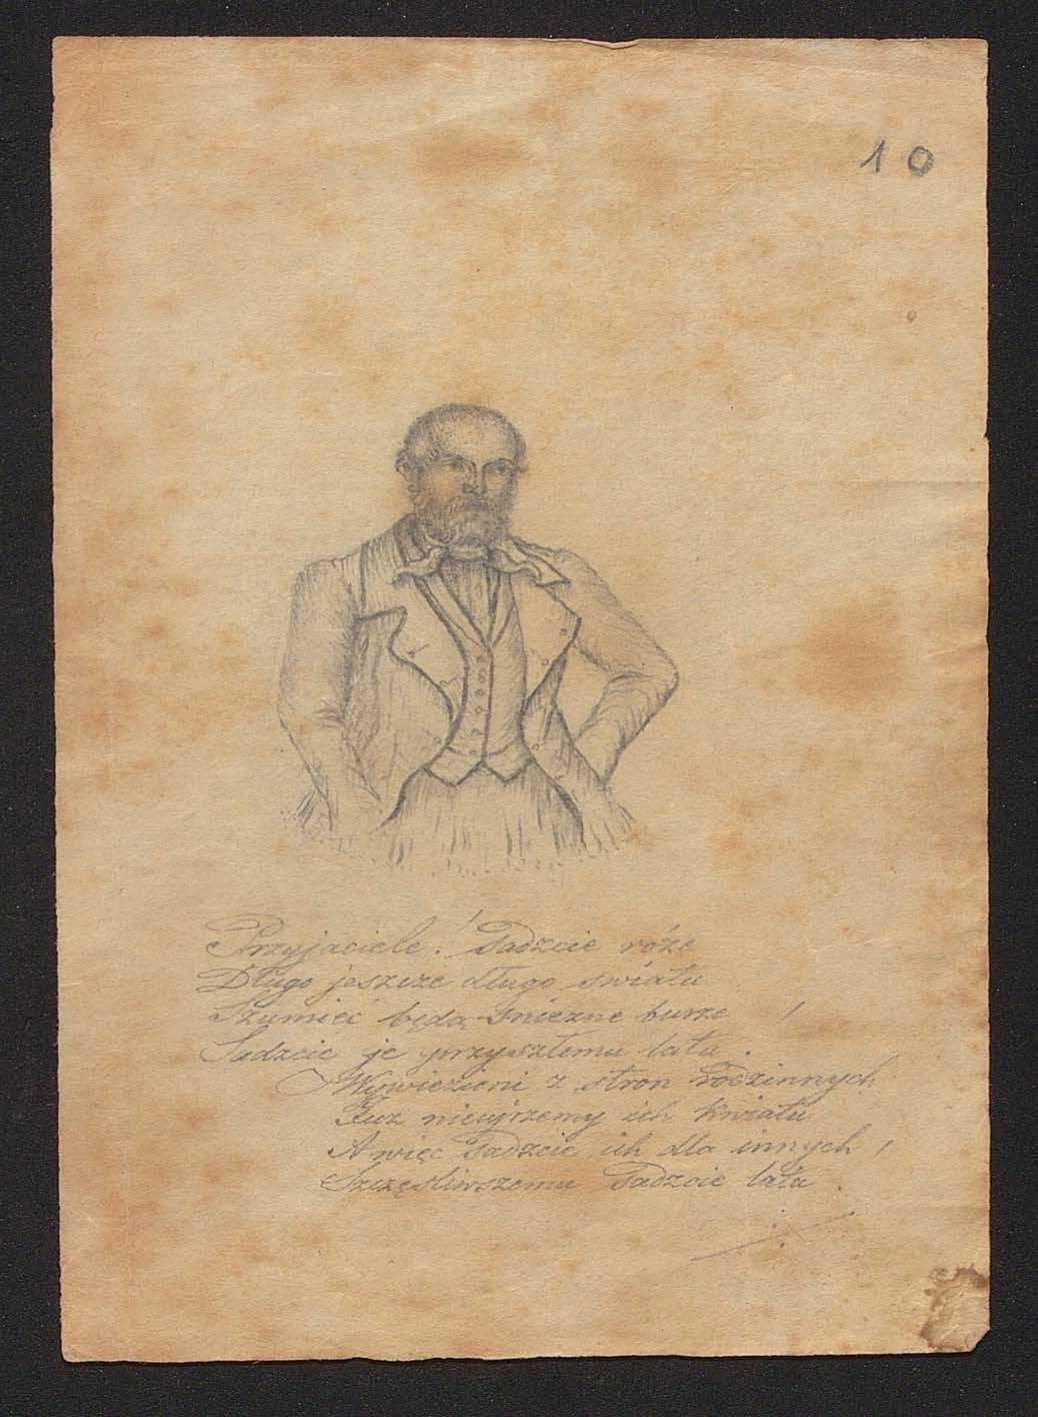 10
Przyjaciele! Sadzcie róże
Długo jeszcze długo światu
Szumieć będą śnieżne burze !
Sadzcie je przyszłemu latu .
Wywiezieni z stron rodzinnych
Juz nieujrzemy ich kwiatu
A więc Sadzcie ich dla innych ,
Szczęśliwszemu Sadzcie latu .